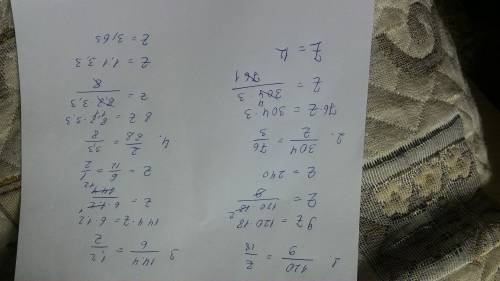 1. 120/9 = z/18
9z = 120·18
z = 120·18²/9
z = 240
2. 304/z = 76/3
76z = 304·3
z = 304·3/76
z = 12
3. 144/6 = 12/z
144·z = 6·12
z = 6·12/144
z = 6/12 = 1/2
4. z/8,8 = 3,3/8
8z = 8,8·3,3
z = 8,8·3,3/8
z = 1,1·3,3
z = 3,63